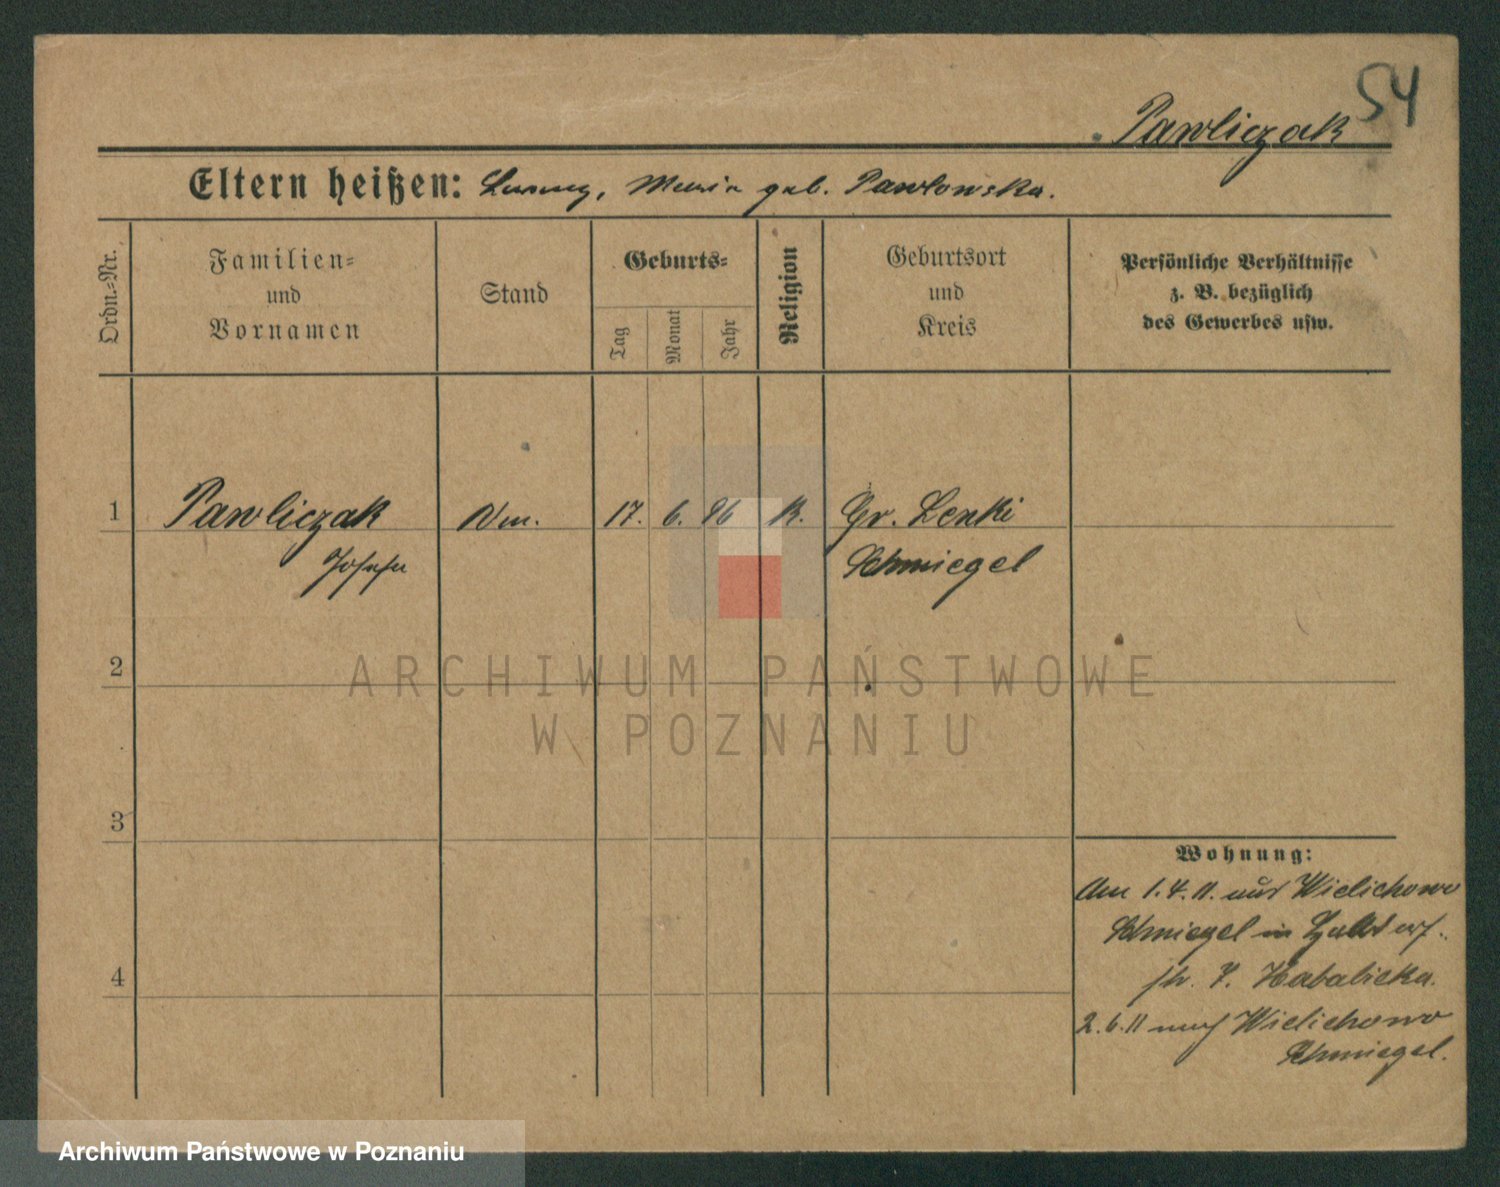 54
Pawliczak
Eltern heißen: Maria geb. Pawlowska.
Ordn.-Nr.
Familien-
und
Vornamen
Stand
Geburts-
Tag
Monat
Jahr
Religion
Geburtsort
und
Kreis
Persönliche Verhältnisse
z. B. bezüglich
des Gewerbes usw.
1
Pawliczak
17. 6. 96 K. Gr. Lenki
Schmiegel
2
3
4
Wohnung:
Am 1.4.11. aus Wielichowo
Schmiegel in
2.6.11 nach Wielichowo
Schmiegel.
ARCHIWUM PAŃSTWOWE
W POZNANIU
Archiwum Państwowe w Poznaniu